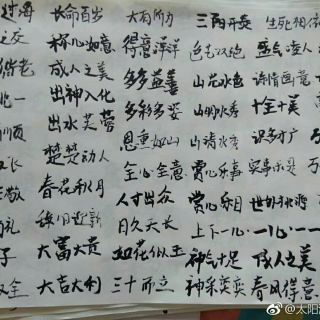 过海 长命百岁 大有作为 三阳开泰 生死相
之交 称心如意 得意洋洋 色艺双绝 盛气凌人
偕老 成人之美 多多益善 山光水色 诗情画意
一 出神入化 多彩多姿 山明水秀 十全十美
顺 出水芙蓉 恩重如山 山清水秀 识多才广
长 楚楚动人 全心全意 赏心乐事 实事求是
敬 春花秋月 人才出众 赏心 目 世外桃源
礼 辞旧迎新 日久天长 上下一心 一心一
子 大富大贵 如花似玉 神气十足 成人之美
全 大吉大利 三十而立 神采奕奕 春风得意
@太阳